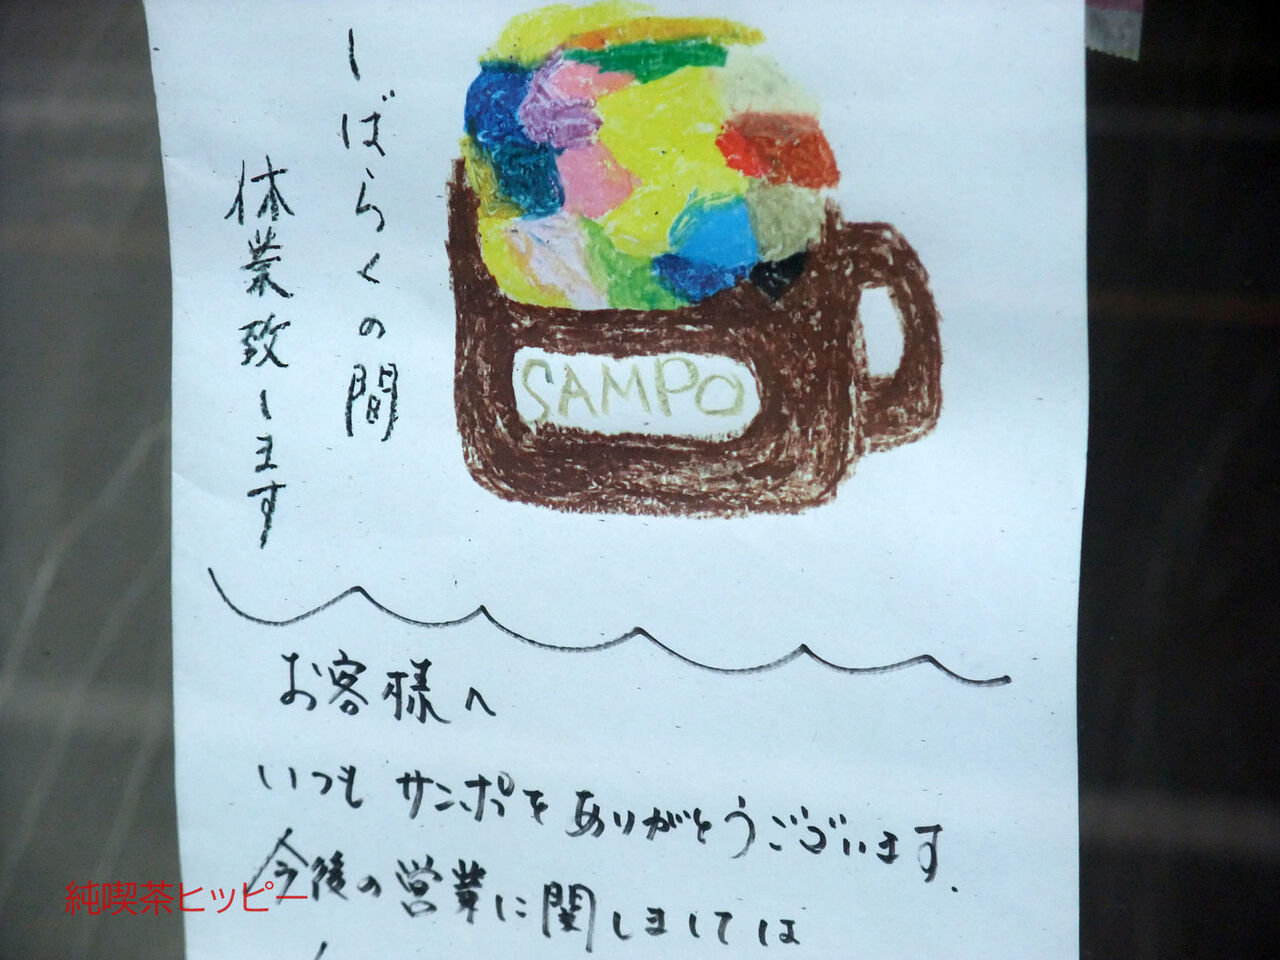 しばらくの間
休業致します
SAMPO
お客様へ
いつもサンポをありがとうございます.
今後の営業に関しましては
純喫茶ヒッピー